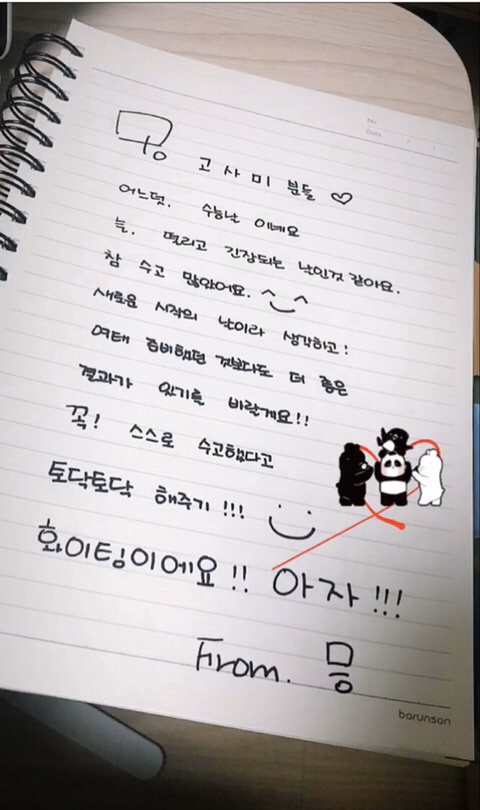 No.
Date
고사미 분들 ♡
어느덧. 수능날 이네요
늘. 떨리고 긴장되는 날인것 같아요.
참 수고 많았어요. ^‿^
새로운 시작의 날이라 생각하고!
여태 준비했던 것보다도 더 좋은
결과가 있기를 바랄게요!!
꼭! 스스로 수고했다고
토닥토닥 해주기!!!
화이팅이에요!! 아자!!!
From. 믕
barunson